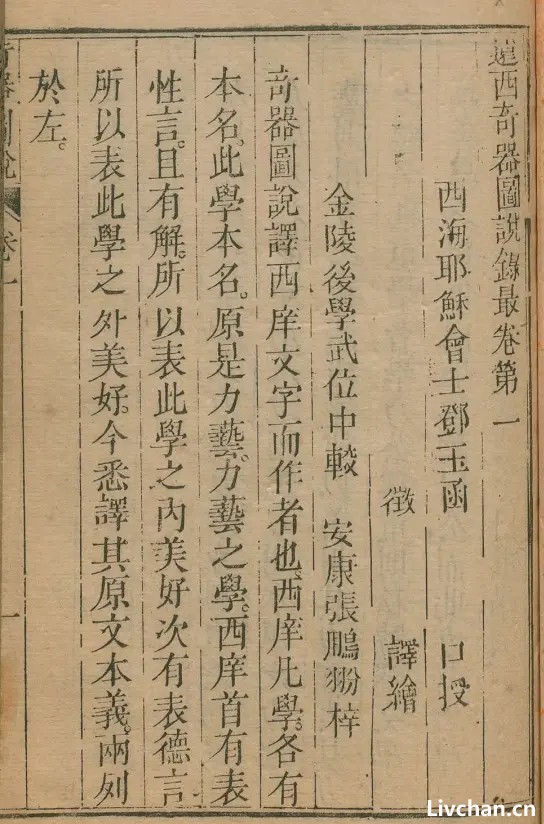 遠西奇器圖說錄最卷第一
西海耶穌會士鄧玉函 口授
徵 譯繪
金陵後學武位中較 安康張鵬翂梓
奇器圖說譯西庠文字而作者也。西庠凡學。各有
本名。此學本名。原是力藝。力藝之學。西庠首有表
性言。且有解。所以表此學之內美好次有表德言
所以表此學之外美好。今悉譯其原文本義。兩列
於左。
奇器圖說 卷一 一
Livchan.cn